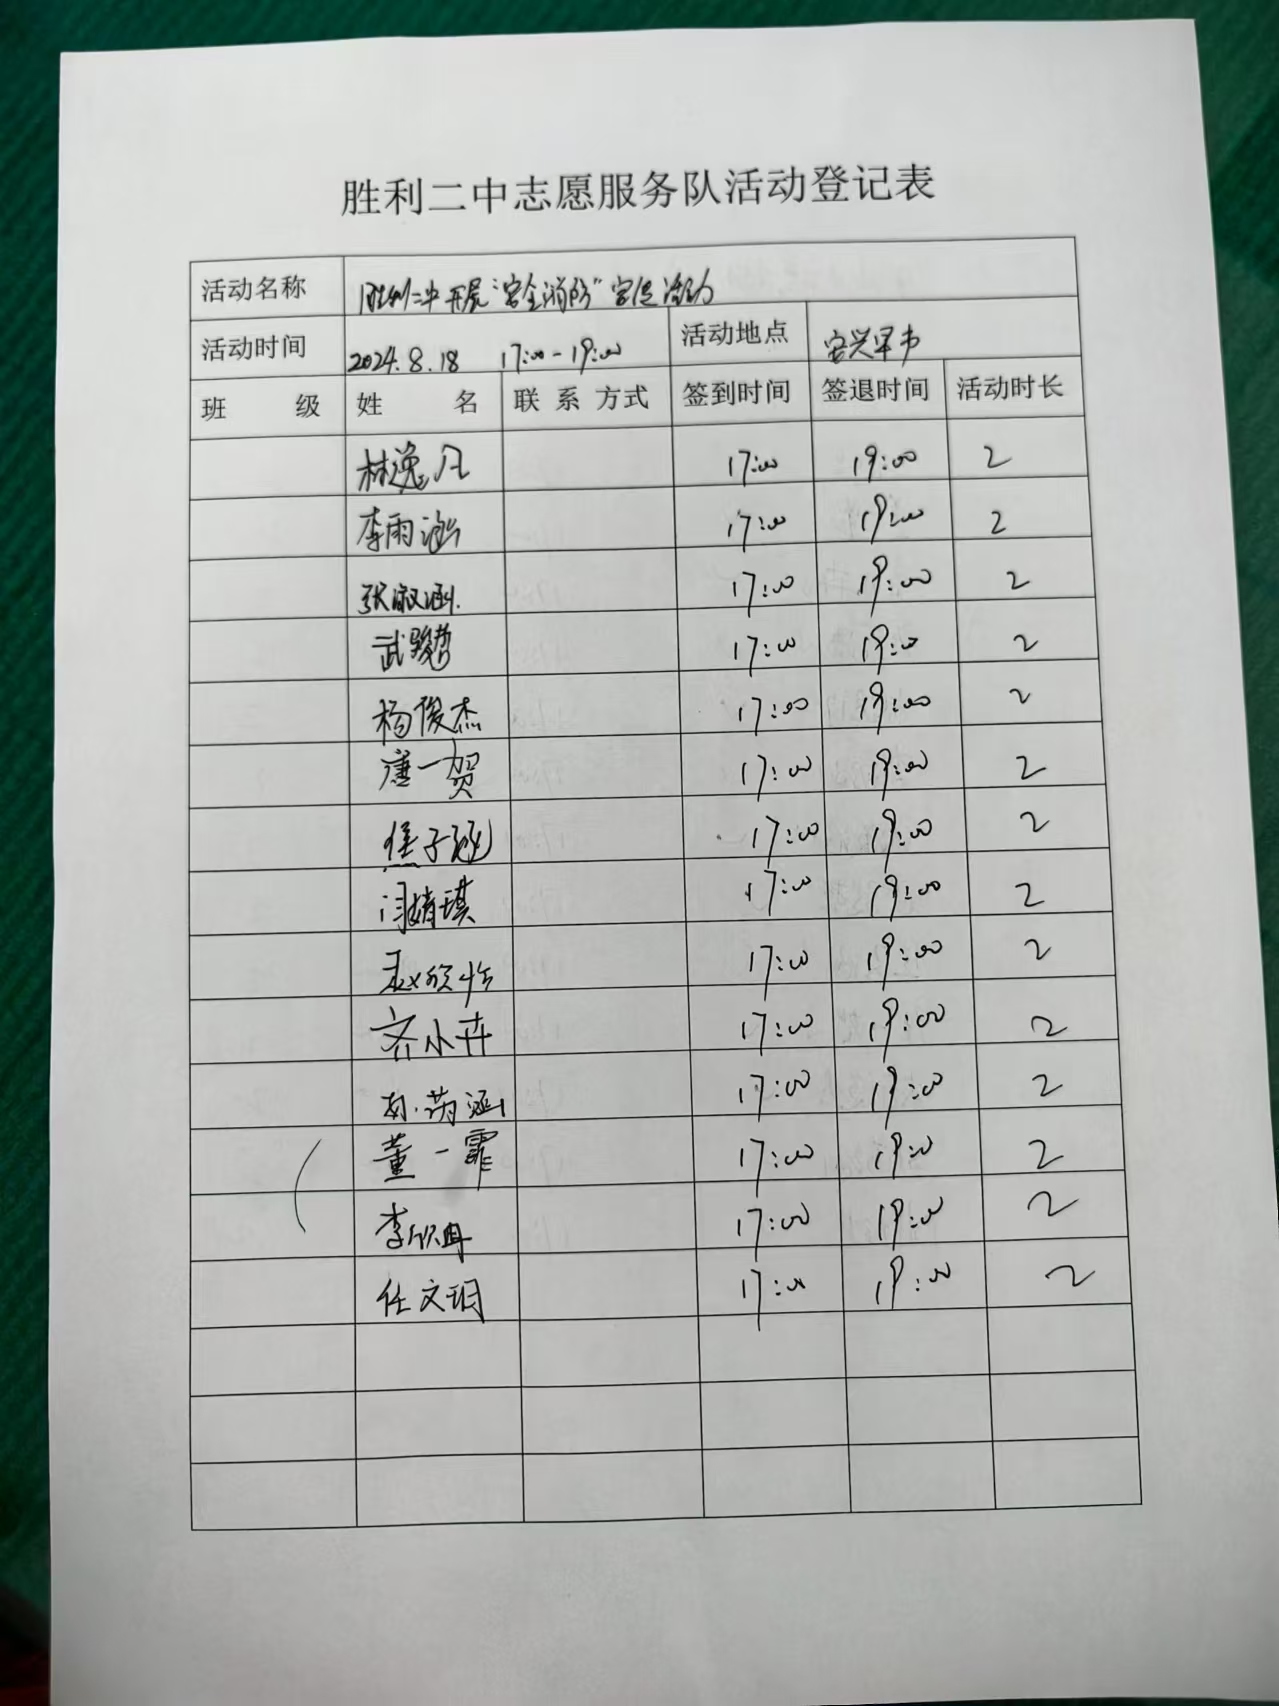 胜利二中志愿服务队活动登记表
活动名称 胜利二中开展“安全消防”宣传活动
活动时间 2024.8.18 17:00-19:00 活动地点 安兴早市
班 级 姓 名 联 系 方式 签到时间 签退时间 活动时长
林逸凡 17:00 19:00 2
李雨涵 17:00 19:00 2
张淑涵 17:00 19:00 2
武骏哲 17:00 19:00 2
杨俊杰 17:00 19:00 2
唐一贺 17:00 19:00 2
焦子涵 17:00 19:00 2
闫婧琪 17:00 19:00 2
赵欣怡 17:00 19:00 2
齐小卉 17:00 19:00 2
17:00 19:00 2
董一霏 17:00 19:00 2
李欣冉 17:00 19:00 2
任文玥 17:00 19:00 2